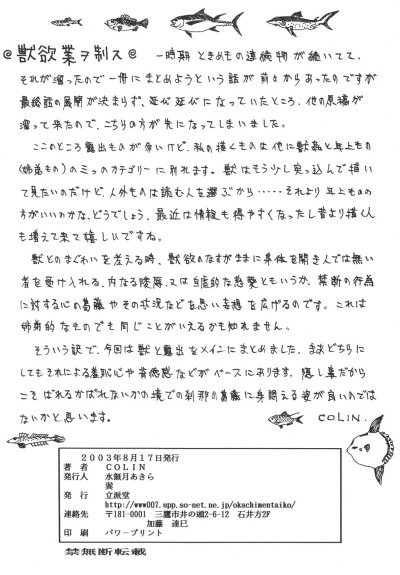 @獣欲業ヲ制ス@ 一時期ときめもの連続物が続いてて、
それが溜ったので一冊にまとめようという話が前々からあったのですが
最終話の展開が決まらず、延び延びになっていたところ、他の原稿が
溜って来たので、こちらの方が先になってしまいました。
ここのところ露出ものが多いけど、私の描くものは他に獣姦と年上もの
(姉弟もの)の三つのカテゴリーに別れます。獣はもう少し突っ込んで描い
て見たいのだけど、人外ものは読む人を選ぶから‥‥‥それより年上ものの
方がいいのかな、どうでしょう、最近は情報も得やすくなったし昔より描く人
も増えて来て嬉しいですね。
獣とのまぐわいを考える時、獣欲のなすがままに身体を開き人では無い
者を受け入れる、内なる陵辱、又は自虐的な慈愛ともいうか、禁断の行為
に対する心の葛藤やその状況などを思い妄想を広げるのです。これは
姉弟的なものでも同じことがいえるかも知れません。
そういう訳で、今回は獣と露出をメインにまとめました、まあどちらに
してもそれによる羞恥心や背徳感などがベースにあります、隠し事だから
こそばれるかばれないかの境での刹那の葛藤に身悶える姿が良いのでは
ないかと思います。 COLIN.
2003年8月17日発行
著者 COLIN
発行人 水無月あきら
巽
発行 立派堂
http://www007.upp.so-net.ne.jp/okachimentaiko/
連絡先 〒181-0001 三鷹市井の頭2-6-12 石井方2F
加藤 達巳
印刷 パワープリント
禁無断転載